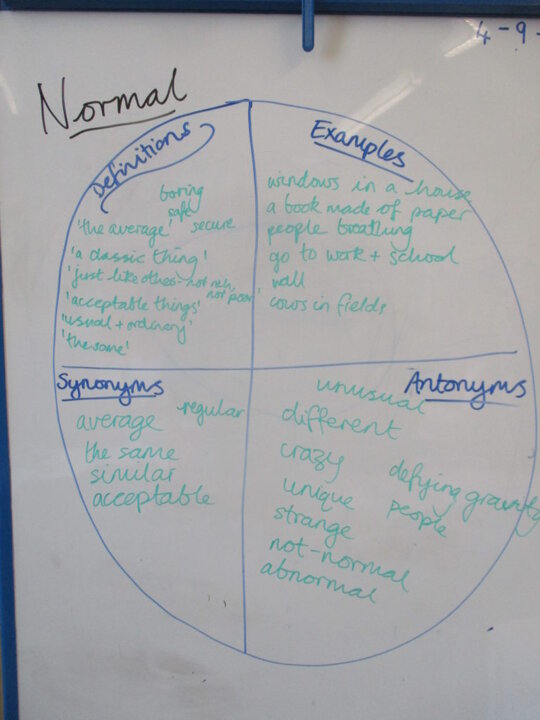 4-9-
Normal
Definitions
boring
safe
'the average' secure
'a classic thing'
'just like others - not rich, not poor'
'acceptable things'
'usual + ordinary'
'the same'
Examples
windows in a house
a book made of paper
people breathing
go to work + school
wall
cows in fields
Synonyms
average -regular
the same
similar
acceptable
Antonyms
unusual
different
crazy
unique
strange
not-normal
abnormal
defying gravity
people